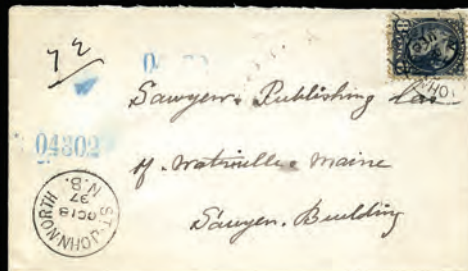 72
04302
Sawyer. Publishing Co
of. Waterville. Maine
Sawyer. Building
ST. JOHN NORTH
OC 18
97
N.B.